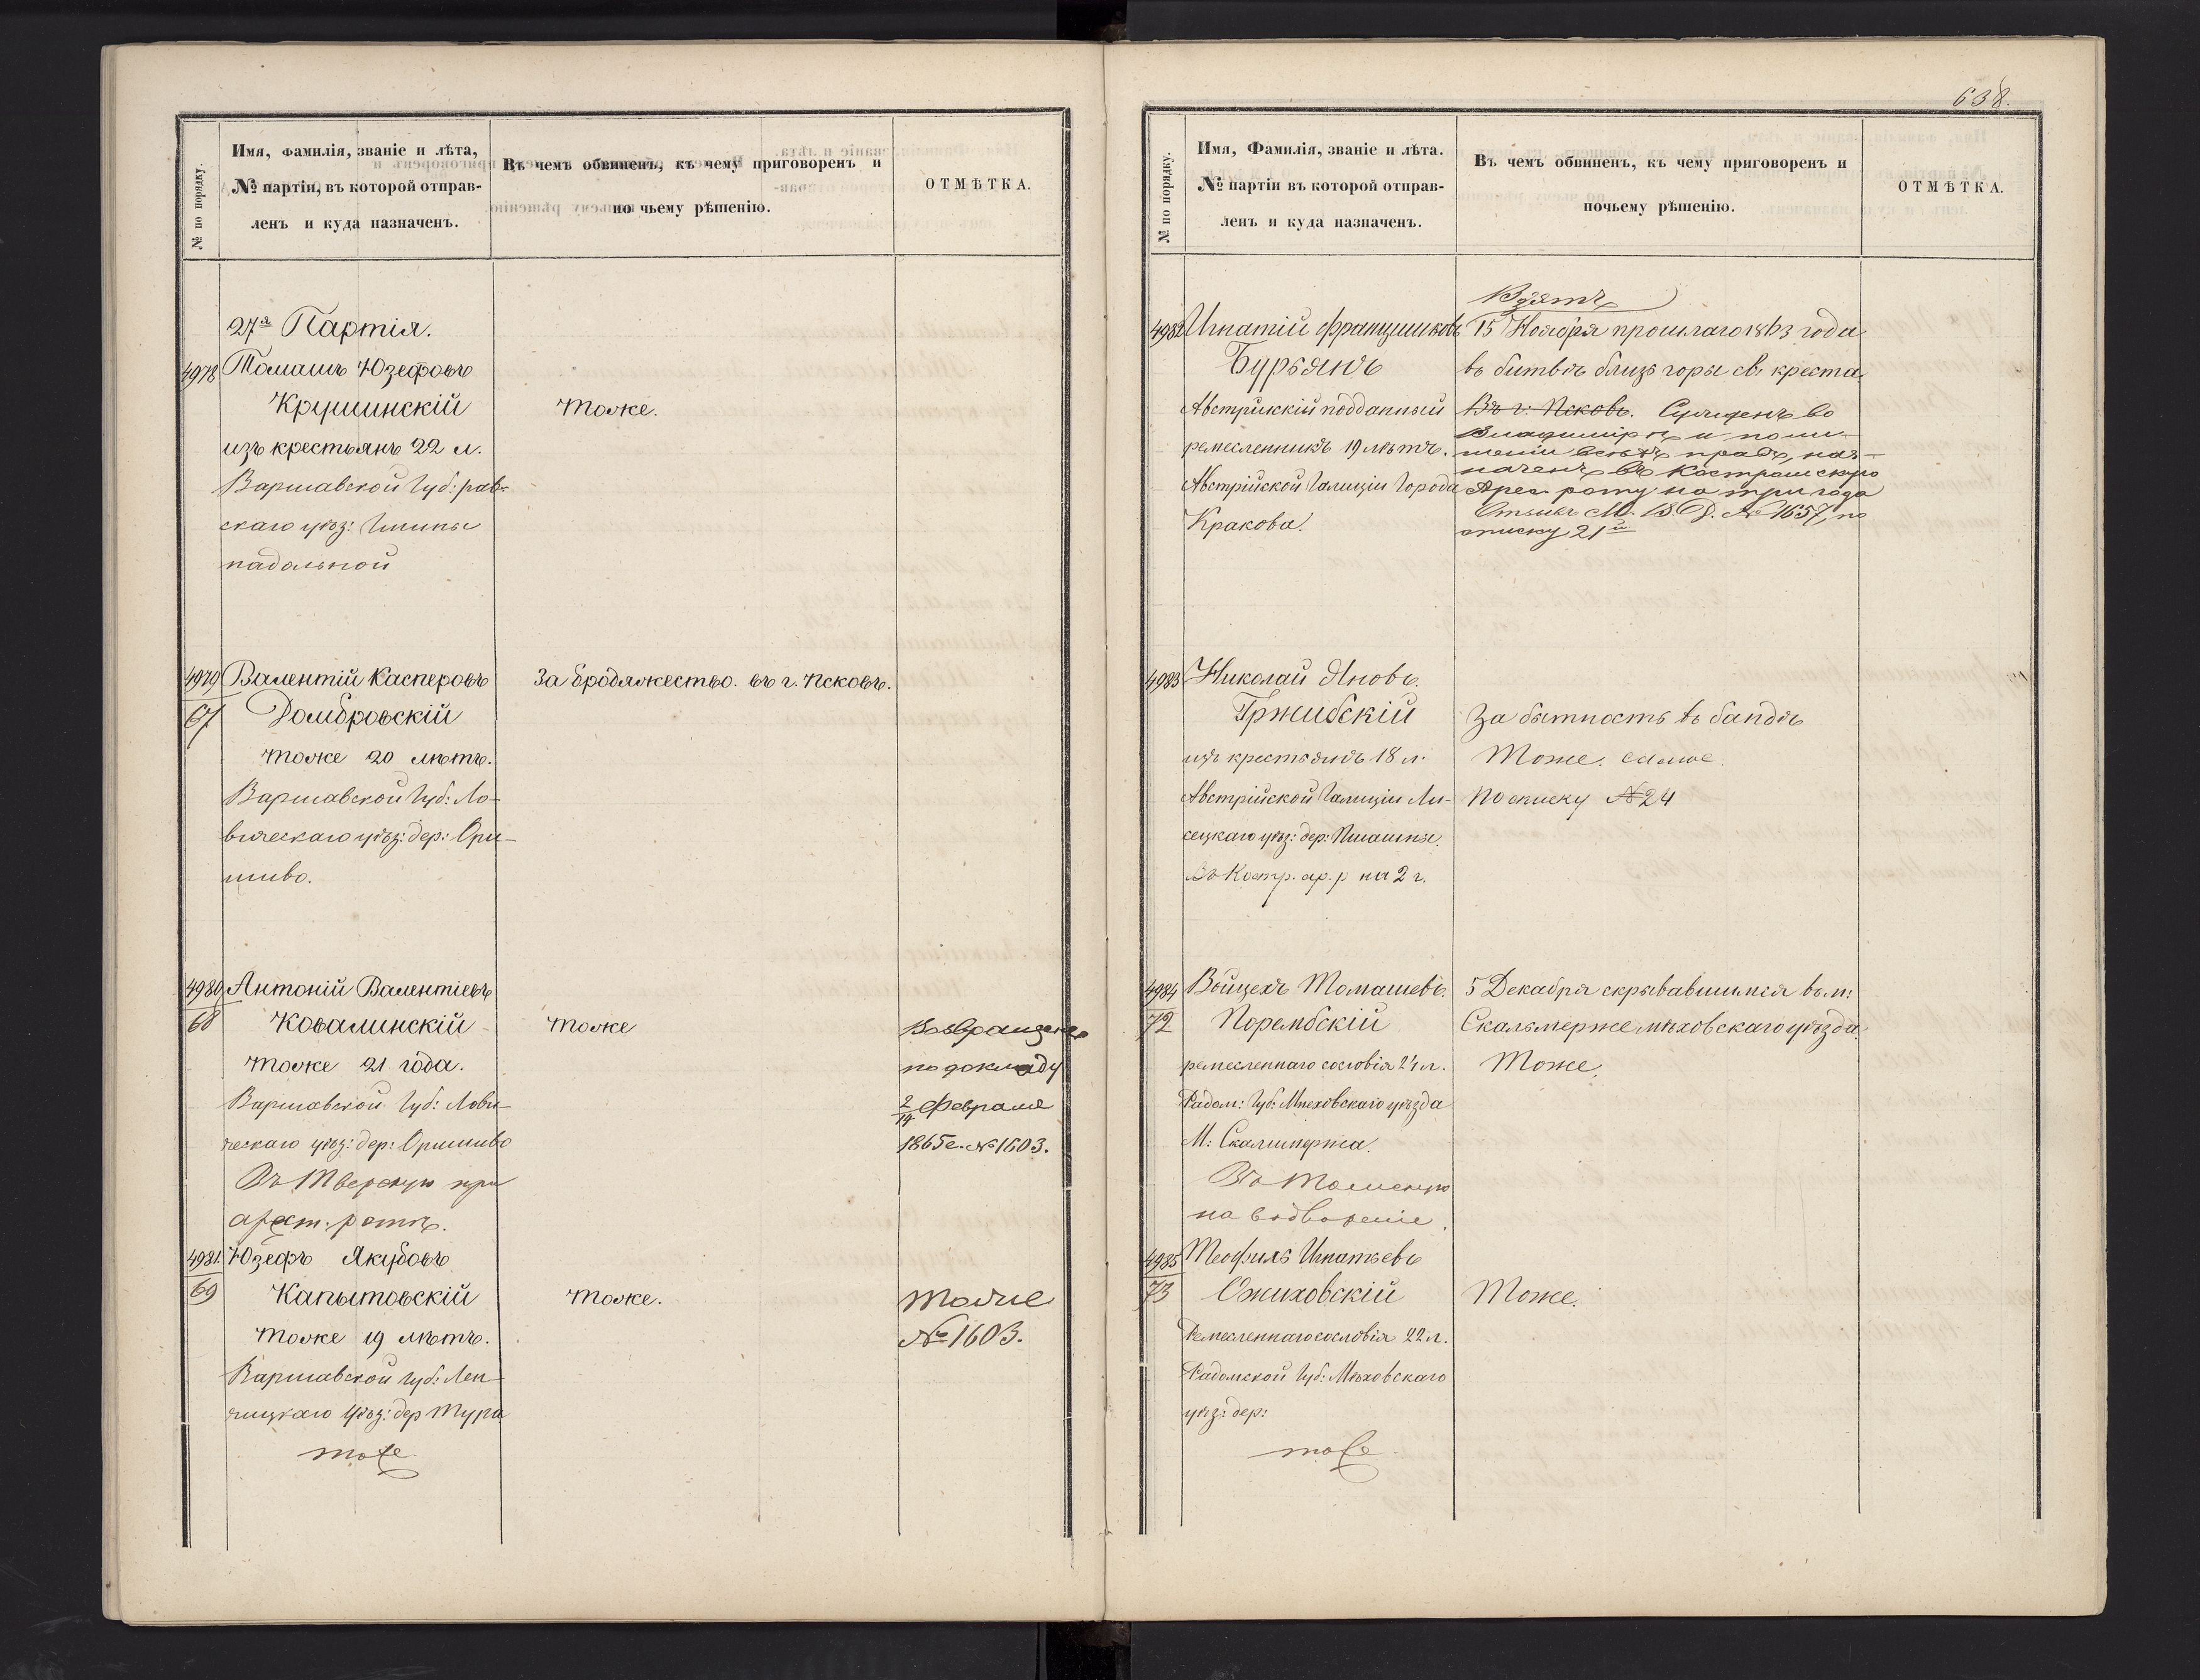 № по порядку.
Имя, Фамилія, званіе и лѣта,
№ партіи, въ которой отправ-
ленъ и куда назначенъ.
Въ чемъ обвиненъ, къ чему приговоренъ и
по чьему рѣшенію.
ОТМѢТКА.
27я Партія.
4978
Томашъ Юзефовъ
Крушинскій
Тоже.
изъ крестьянъ 22 л.
Варшавской Губ: рав-
скаго уѣз: Гмины
падольной
4979
Валентій Касперовъ
За бродяжество. въ г. Псковъ.
67
Домбровскій
тоже 20 лѣтъ.
Варшавской Губ: Ло-
вическаго уѣз: дер: Ори-
шиво.
4980
Антоній Валентіевъ
68
Ковалинскій
тоже
Возвращенъ
тоже 21 года.
по докладу
Варшавской Губ: Лови-
2/14 февраля
ческаго уѣз: дер: Оришиво
1865г. № 1603.
Въ Тверскую при
арест. ротъ.
4981.
Юзефъ Якубовъ
69
Капытовскій
тоже.
тоже
тоже 19 лѣтъ.
№ 1603.
Варшавской Губ: Лен-
чицкаго уѣз: дер Тура
тоже
638.
№ по порядку.
Имя, Фамилія, званіе и лѣта.
№ партіи въ которой отправ-
ленъ и куда назначенъ.
Въ чемъ обвиненъ, къ чему приговоренъ и
почьему рѣшенію.
ОТМѢТКА.
Взятъ
4982
Игнатій Францишковъ
15 Ноября прошлаго 1863 года
Бурьянъ
въ битвѣ близъ горы св: креста.
Австрійскій подданный
Въ г: Псковъ. Сужденъ во
ремесленникъ 19 лѣтъ.
Владимірѣ и поли-
шеніи всѣхъ правъ, наз-
наченъ въ Костромскую
Австрійской Галиціи Города
Арес. роту на три года
Кракова.
Отзывъ М. В. Д. № 1657, по
списку 21й
4983
Николай Яновъ.
Гржибскій
За бытность въ бандѣ
изъ крестьянъ 18 л.
Тоже. самое.
Австрійской Галиціи Ли-
По списку № 24
сецкаго уѣз: дер:
Въ Костр. ар. р на 2 г.
4984
Войцехъ Томашевъ.
5 Декабря скрывавшимся въ м:
72
Порембскій
Скальмерже мѣховскаго уѣзда.
ремесленнаго сословія 24 л.
Тоже.
Радом: Губ: Мѣховскаго уѣзда
М: Скалимержа.
Въ Томскую
на водвореніе.
4985
Теофиль Игнатьевъ
73
Ожиховскій
Тоже.
Ремесленнаго сословія 22 л.
Радомской Губ: Мѣховскаго
уѣз: дер:
тоже.